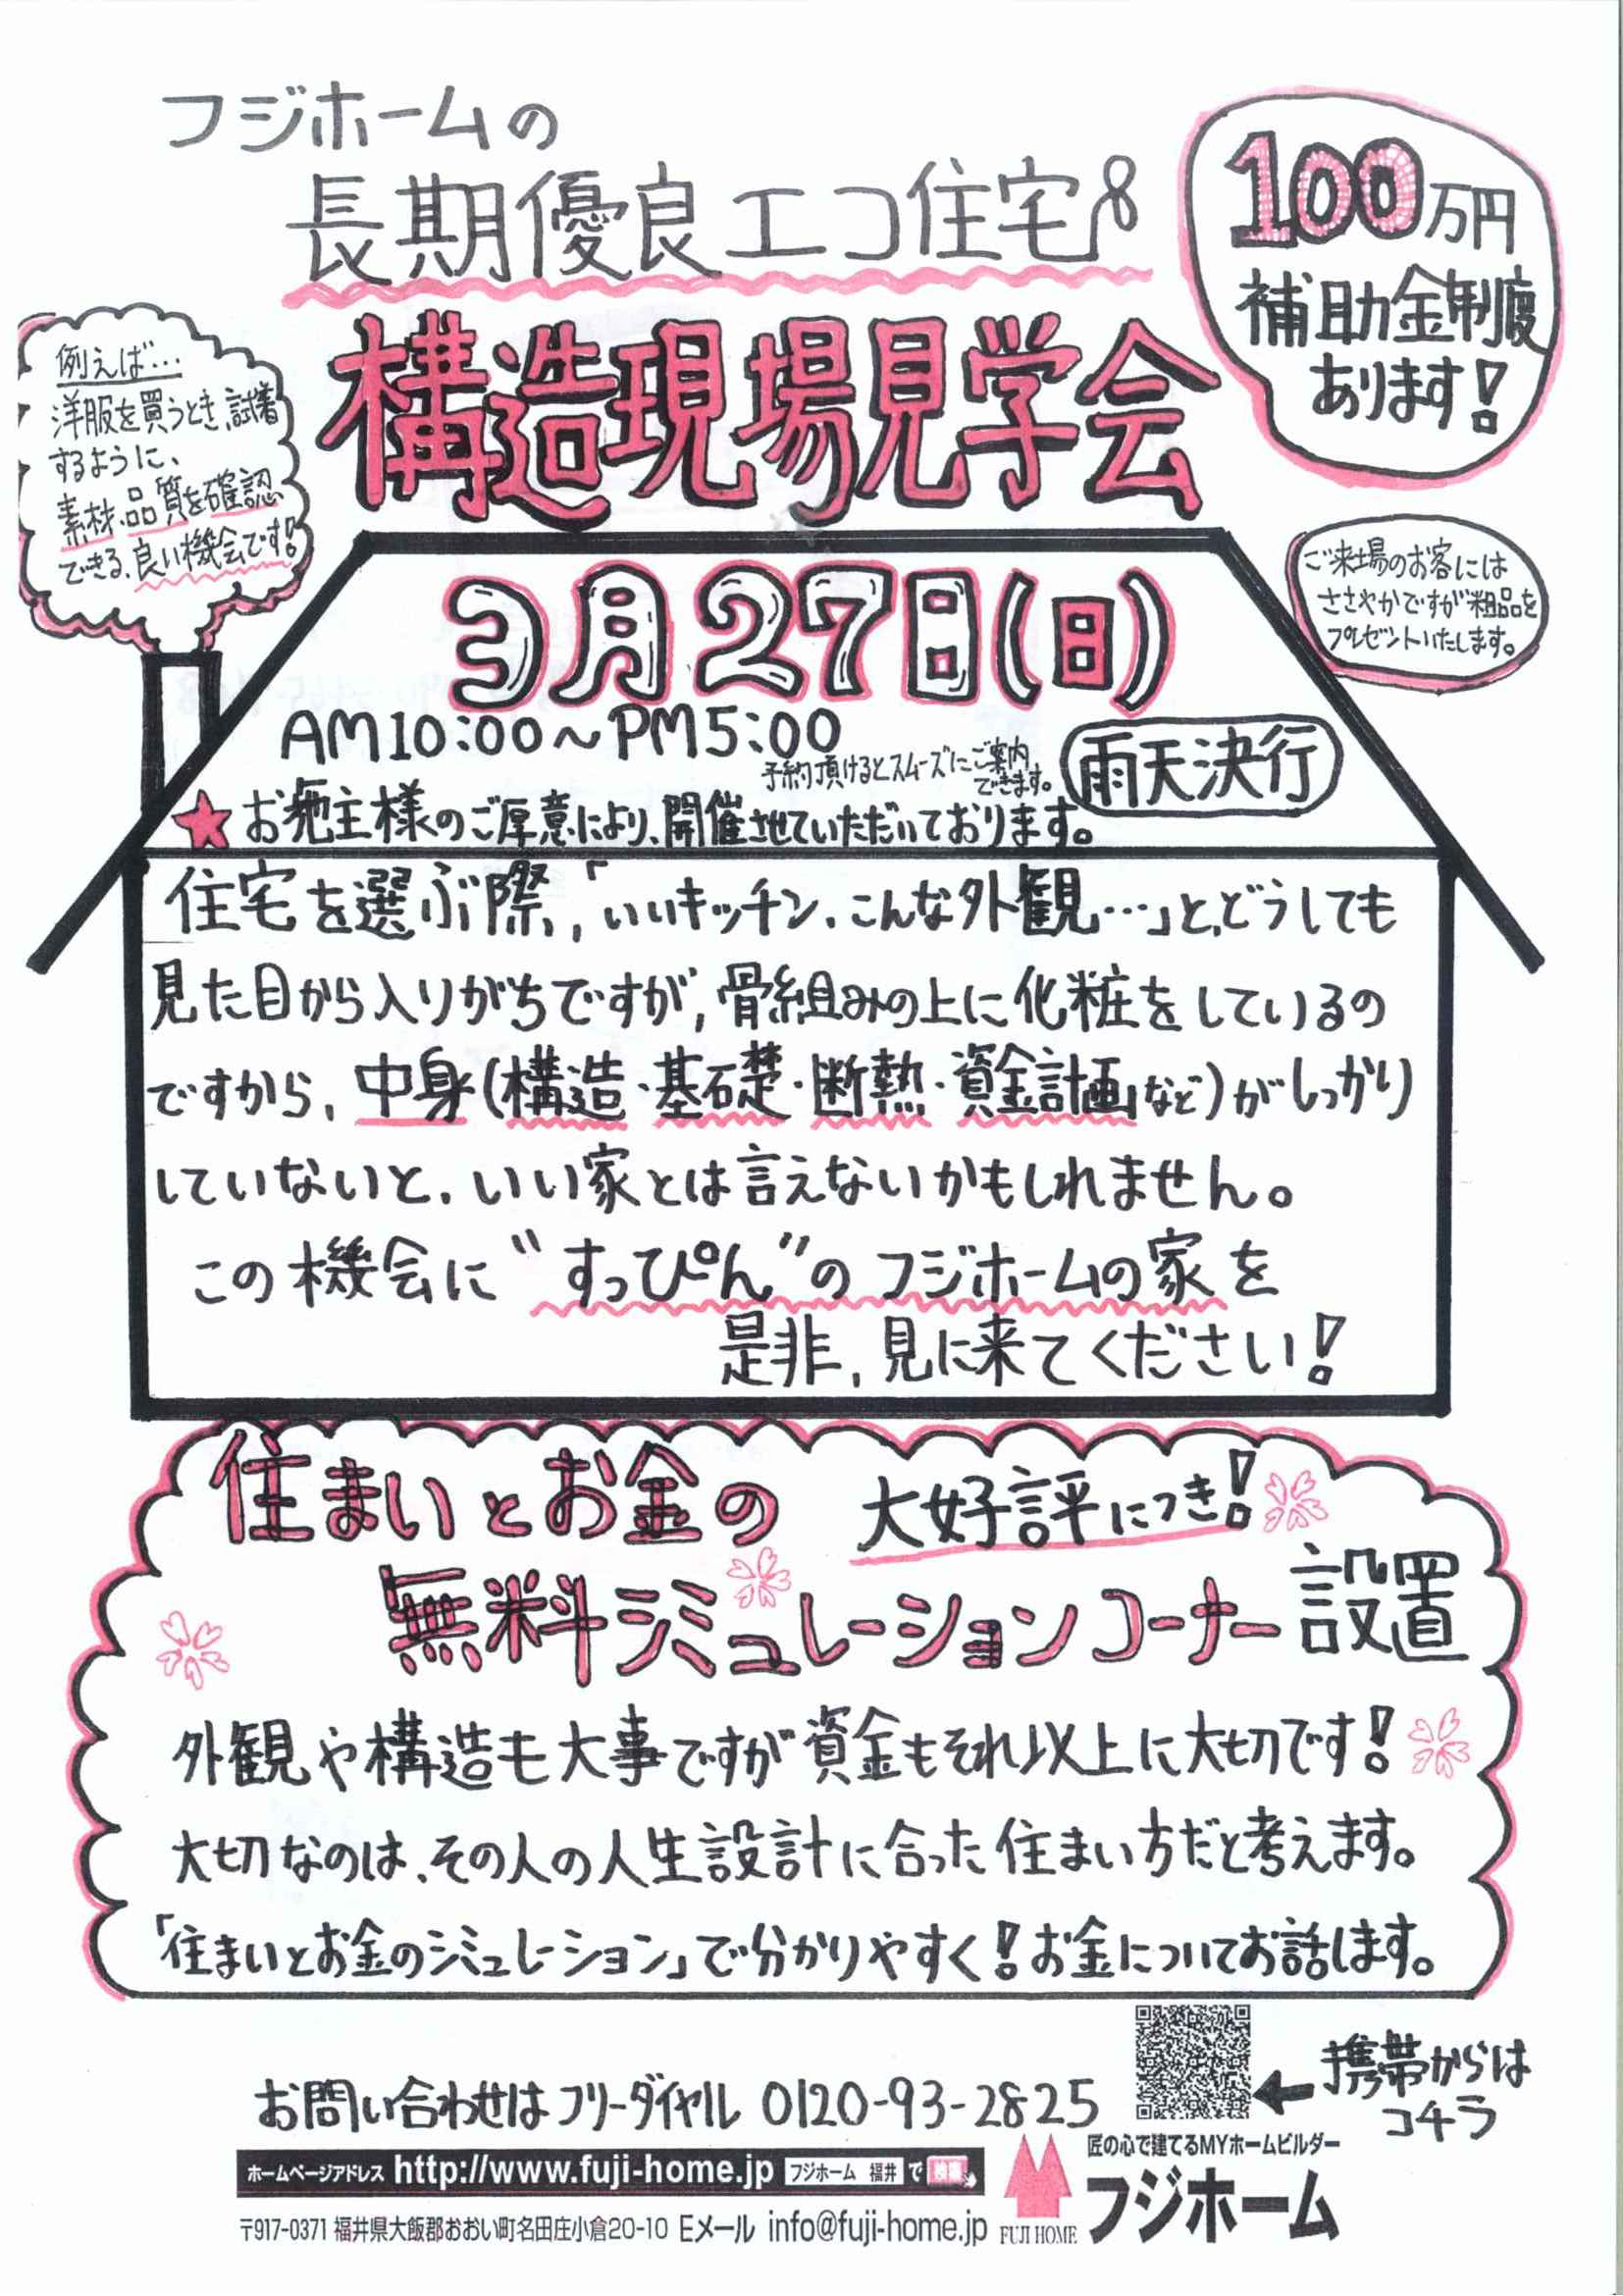 フジホームの
長期優良エコ住宅
100万円
補助金制度
あります!
構造現場見学会
例えば…
洋服を買うとき、試着
するように、
素材、品質を確認
できる、良い機会です!
ご来場のお客には
ささやかですが粗品を
プレゼントいたします。
3月27日(日)
AM10:00～PM5:00
予約頂けるとスムーズにご案内
できます。
雨天決行
★お施主様のご厚意により、開催させていただいております。
住宅を選ぶ際、「いいキッチン、こんな外観…」と、どうしても
見た目から入りがちですが、骨組みの上に化粧をしているの
ですから、中身(構造・基礎・断熱・資金計画など)がしっかり
していないと、いい家とは言えないかもしれません。
この機会に“すっぴん”のフジホームの家を
是非、見に来てください!
住まいとお金の
大好評につき!
無料シミュレーションコーナー設置
外観や構造も大事ですが資金もそれ以上に大切です!
大切なのは、その人の人生設計に合った住まい方だと考えます。
「住まいとお金のシミュレーション」で分かりやすく!お金についてお話します。
お問い合わせはフリーダイヤル 0120-93-2825
携帯からは
コチラ
ホームページアドレス http://www.fuji-home.jp フジホーム 福井 で 検索
〒917-0371 福井県大飯郡おおい町名田庄小倉20-10 Eメール info@fuji-home.jp
FUJI HOME
匠の心で建てるMYホームビルダー
フジホーム